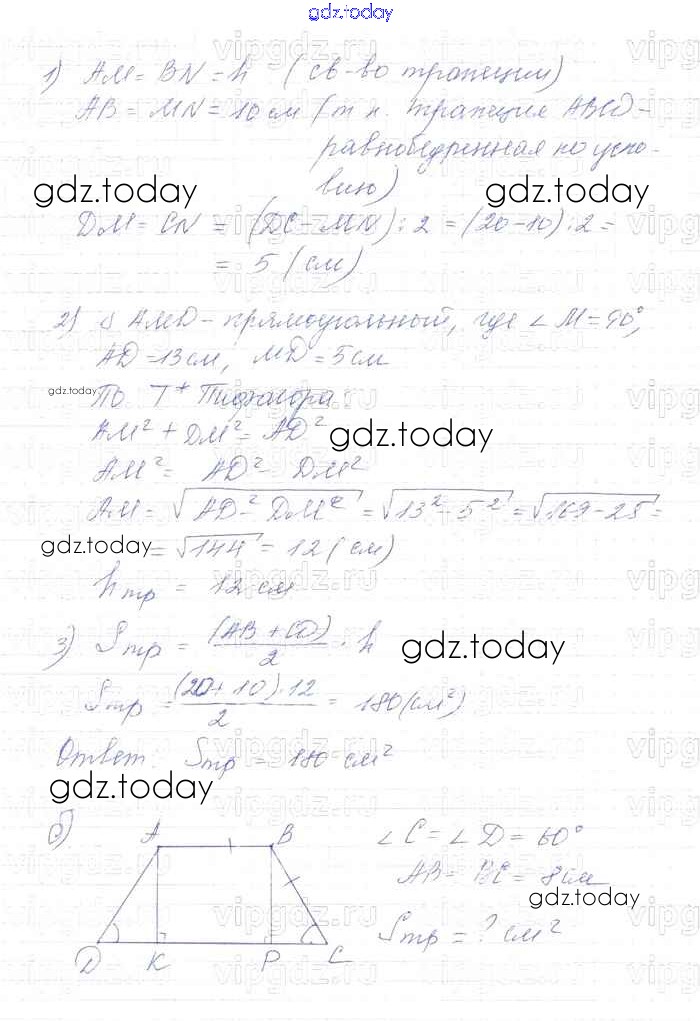 gdz.today
1) AM = BN = h (св-во трапеции)
AB = MN = 10 см (т.к. трапеция ABCD -
равнобедренная по усло-
вию)
gdz.today gdz.today
DM = CN = (DC - MN) : 2 = (20 - 10) : 2 =
= 5 (см)
2) Δ AMD - прямоугольный, где ∠ M = 90°,
AD = 13 см, MD = 5 см
gdz.today
По Т. Пифагора:
AM² + DM² = AD²
gdz.today
AM² = AD² - DM²
AM = √AD² - DM² = √13² - 5² = √169 - 25 =
gdz.today
= √144 = 12 (см)
hтр = 12 см
3) Sтр = (AB + CD)/2 · h
gdz.today
Sтр = (20 + 10) · 12/2 = 180 (см²)
Ответ: Sтр = 180 см²
gdz.today
б)
A B
∠ C = ∠ D = 60°
AB = BC = 8 см
gdz.today
Sтр = ? см²
D K P C